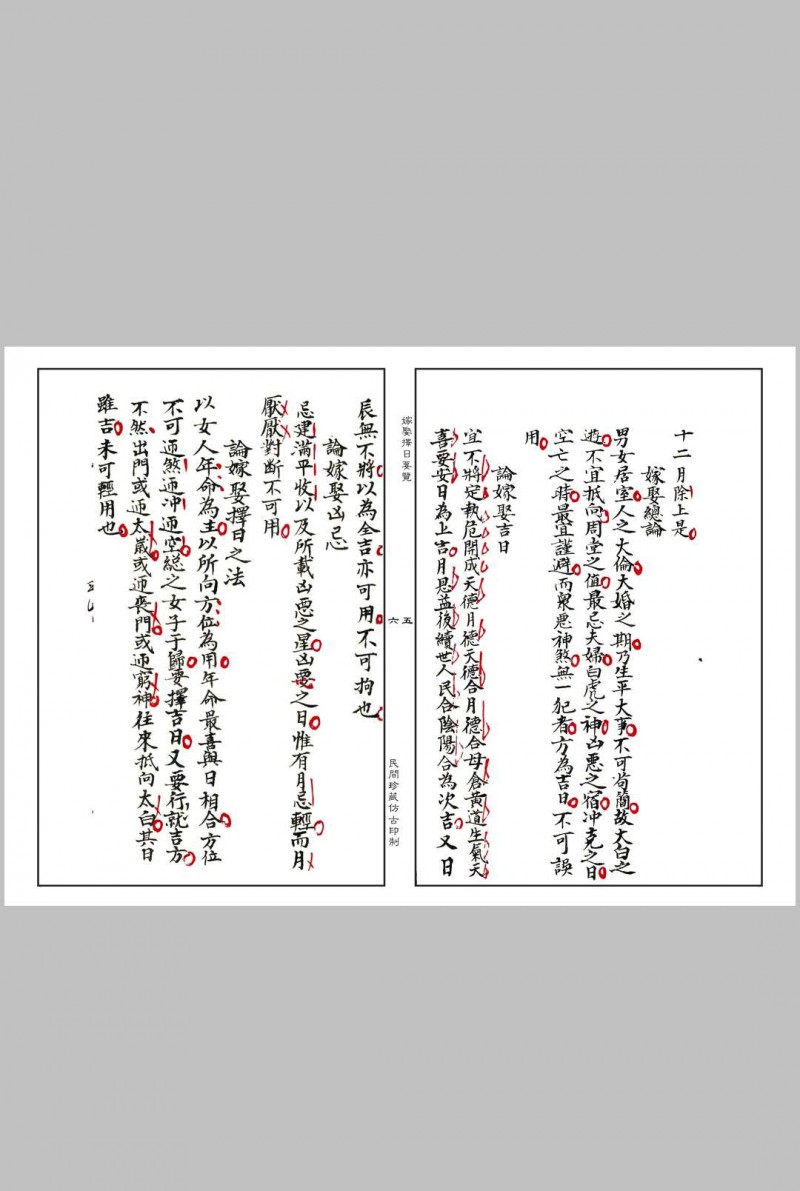 十二月除上是
嫁娶總論
男女居室人之大倫大婚之期乃生平大事不可苟簡故大白之
遊不宜抵向周堂之值最忌夫婦白虎之神凶悪之宿冲克之日
空亡之時最宜謹避而衆悪神煞無一犯者方為吉日不可誤
用
論嫁娶吉日
宜不將定執危開成天德月德天德合月德合母倉黄道生氣天
喜要安日為上吉月恩益後續世人民合陰陽合為次吉又日
嫁娶擇日要覽
五
六
民間珍藏仿古印制
辰無不將以為全吉亦可用不可拘也
論嫁娶凶忌
忌建滿平收以及所載凶悪之星凶要之日惟有月忌輕而月
厭厭對斷不可用
論嫁娶擇日之法
以女人年命為主以所向方位為用年命最喜與日相合方位
不可逥煞逥冲逥空總之女子于歸要擇吉日又要行就吉方
不然出門或逥太歲或逥喪門或逥窮神往來抵向太白其日
雖吉未可輕用也